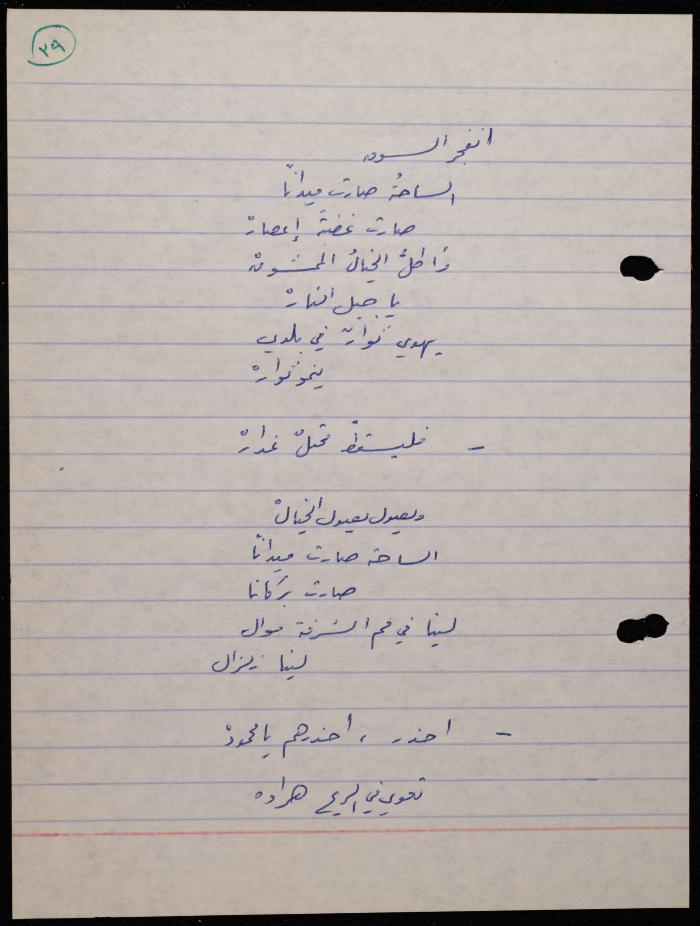 ٢٩
انفجر السوق
الساحةُ صارت ميداناً
صارت غضبةُ إعصارْ
وأطلَّ الخيالُ الممشوقْ
يا جبل النارْ
يهوي ثوارٌ في بلدي
ينمو ثوارْ
- فليسقطْ محتلٌ غدارْ
ويصول يصول الخيالْ
الساحة صارت ميداناً
صارت بركانا
لينا في فم الشرفة موال
لينا زلزال
- احذر ، احذرهم يا محمودْ
تعوي في الريح هراوه